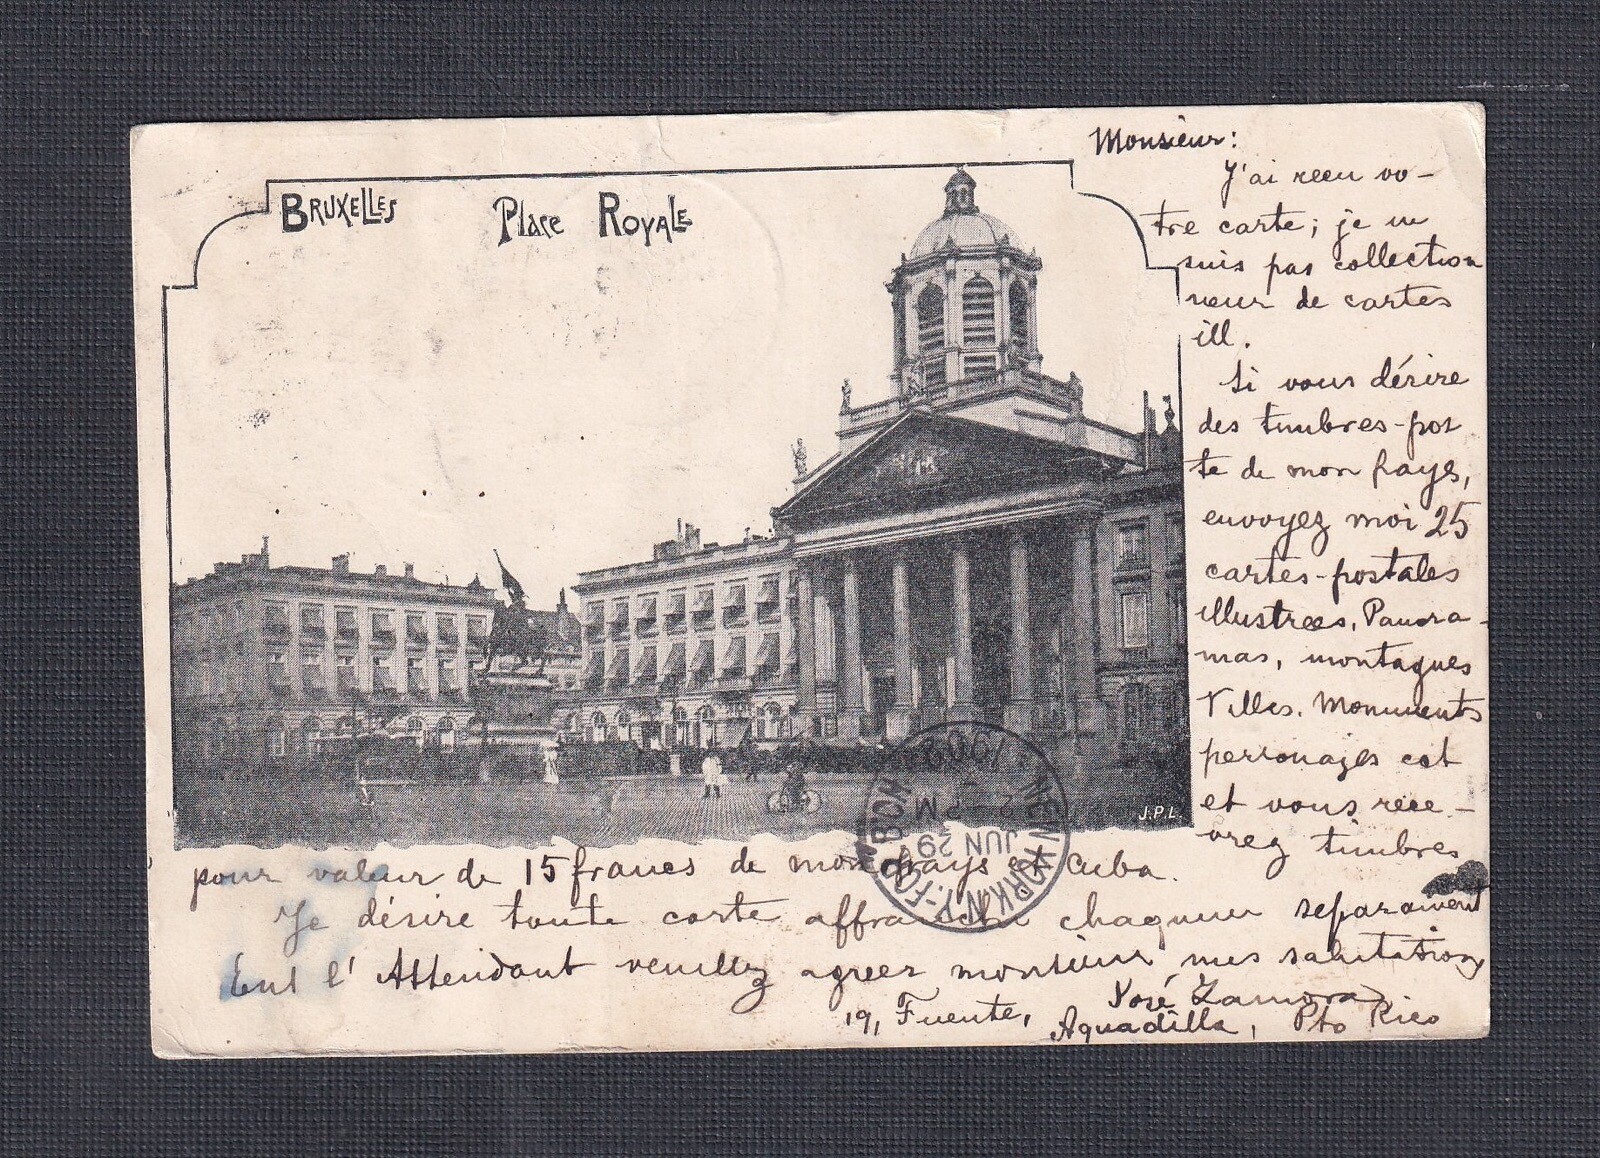 BRUXELLES Place ROYALE
Monsieur:
J'ai recu vo-
tre carte; je ne
suis pas collection
neur de cartes
ill.
Si vous désire
des timbres-pos
te de mon pays,
envoyez moi 25
cartes-postales
illustrees, Panora-
mas, montagnes
Villes. Monuments
personages est
et vous rece-
vrez timbres
pour valeur de 15 francs de mon pays et Cuba.
Je désire toute carte affranchi chaqueun separament
l'Attendant veuillez agreer monsieur mes salutations
José Zamora
19, Fuente, Aquadilla, Pto Rico
J.P.L.
NEW YORK, N.Y.
JUN 29
2-PM